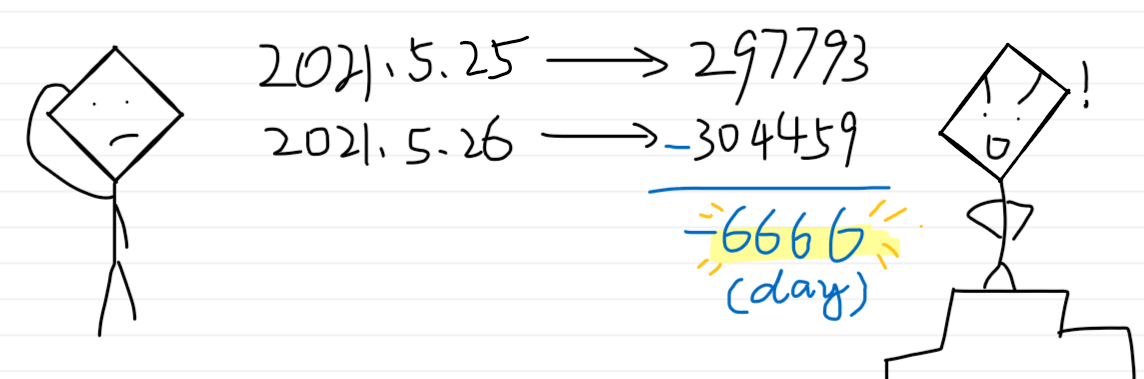 2021.5.25 → 297793
2021.5.26 → -304459
-6666
(day)
!